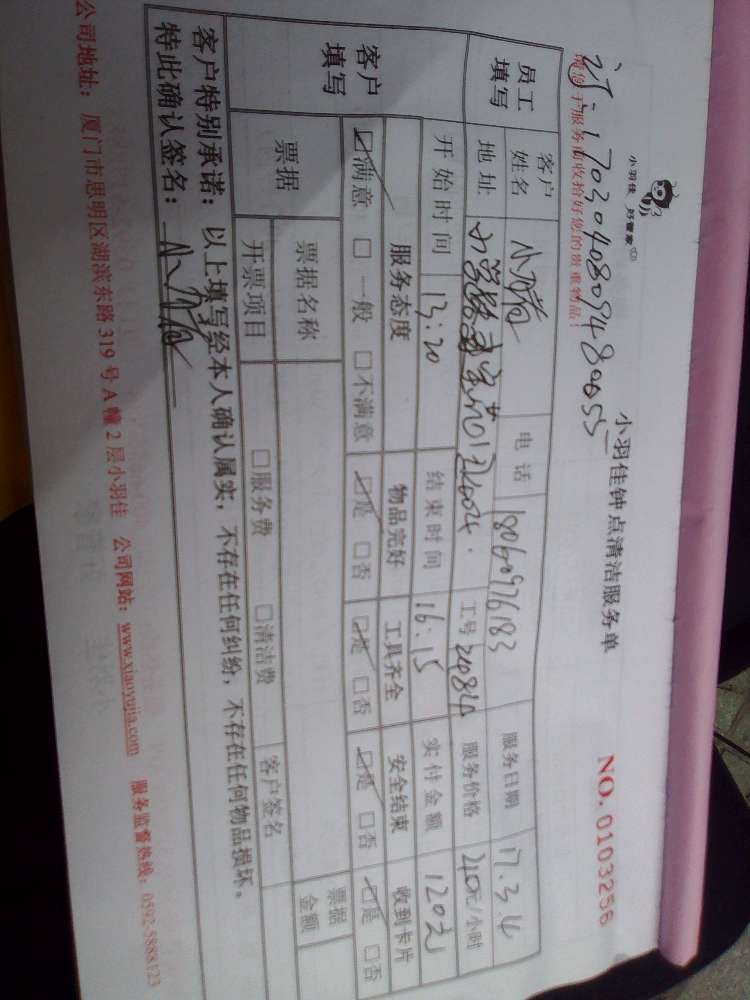 小羽佳 好管家
小羽佳钟点清洁服务单
NO. 0103256
1703040809480055
请您于服务前收拾好您的贵重物品！
员工填写 客户姓名 电话 18060976183 服务日期 17.3.4
地址 工号 2484 服务价格 40元/小时
开始时间 13:20 结束时间 16:15 实付金额 120元
客户填写 服务态度 物品完好 工具齐全 安全结束 收到卡片
☑满意 □一般 □不满意 ☑是 □否 ☑是 □否 ☑是 □否 ☑是 □否
票据 票据名称 票据金额
开票项目 □服务费 □清洁费 客户签名
客户特别承诺：以上填写经本人确认属实，不存在任何纠纷，不存在任何物品损坏。
特此确认签名：
公司地址：厦门市思明区湖滨东路319号A幢2层小羽佳 公司网站：www.xiaoyujia.com 服务监督热线：0592-5888123